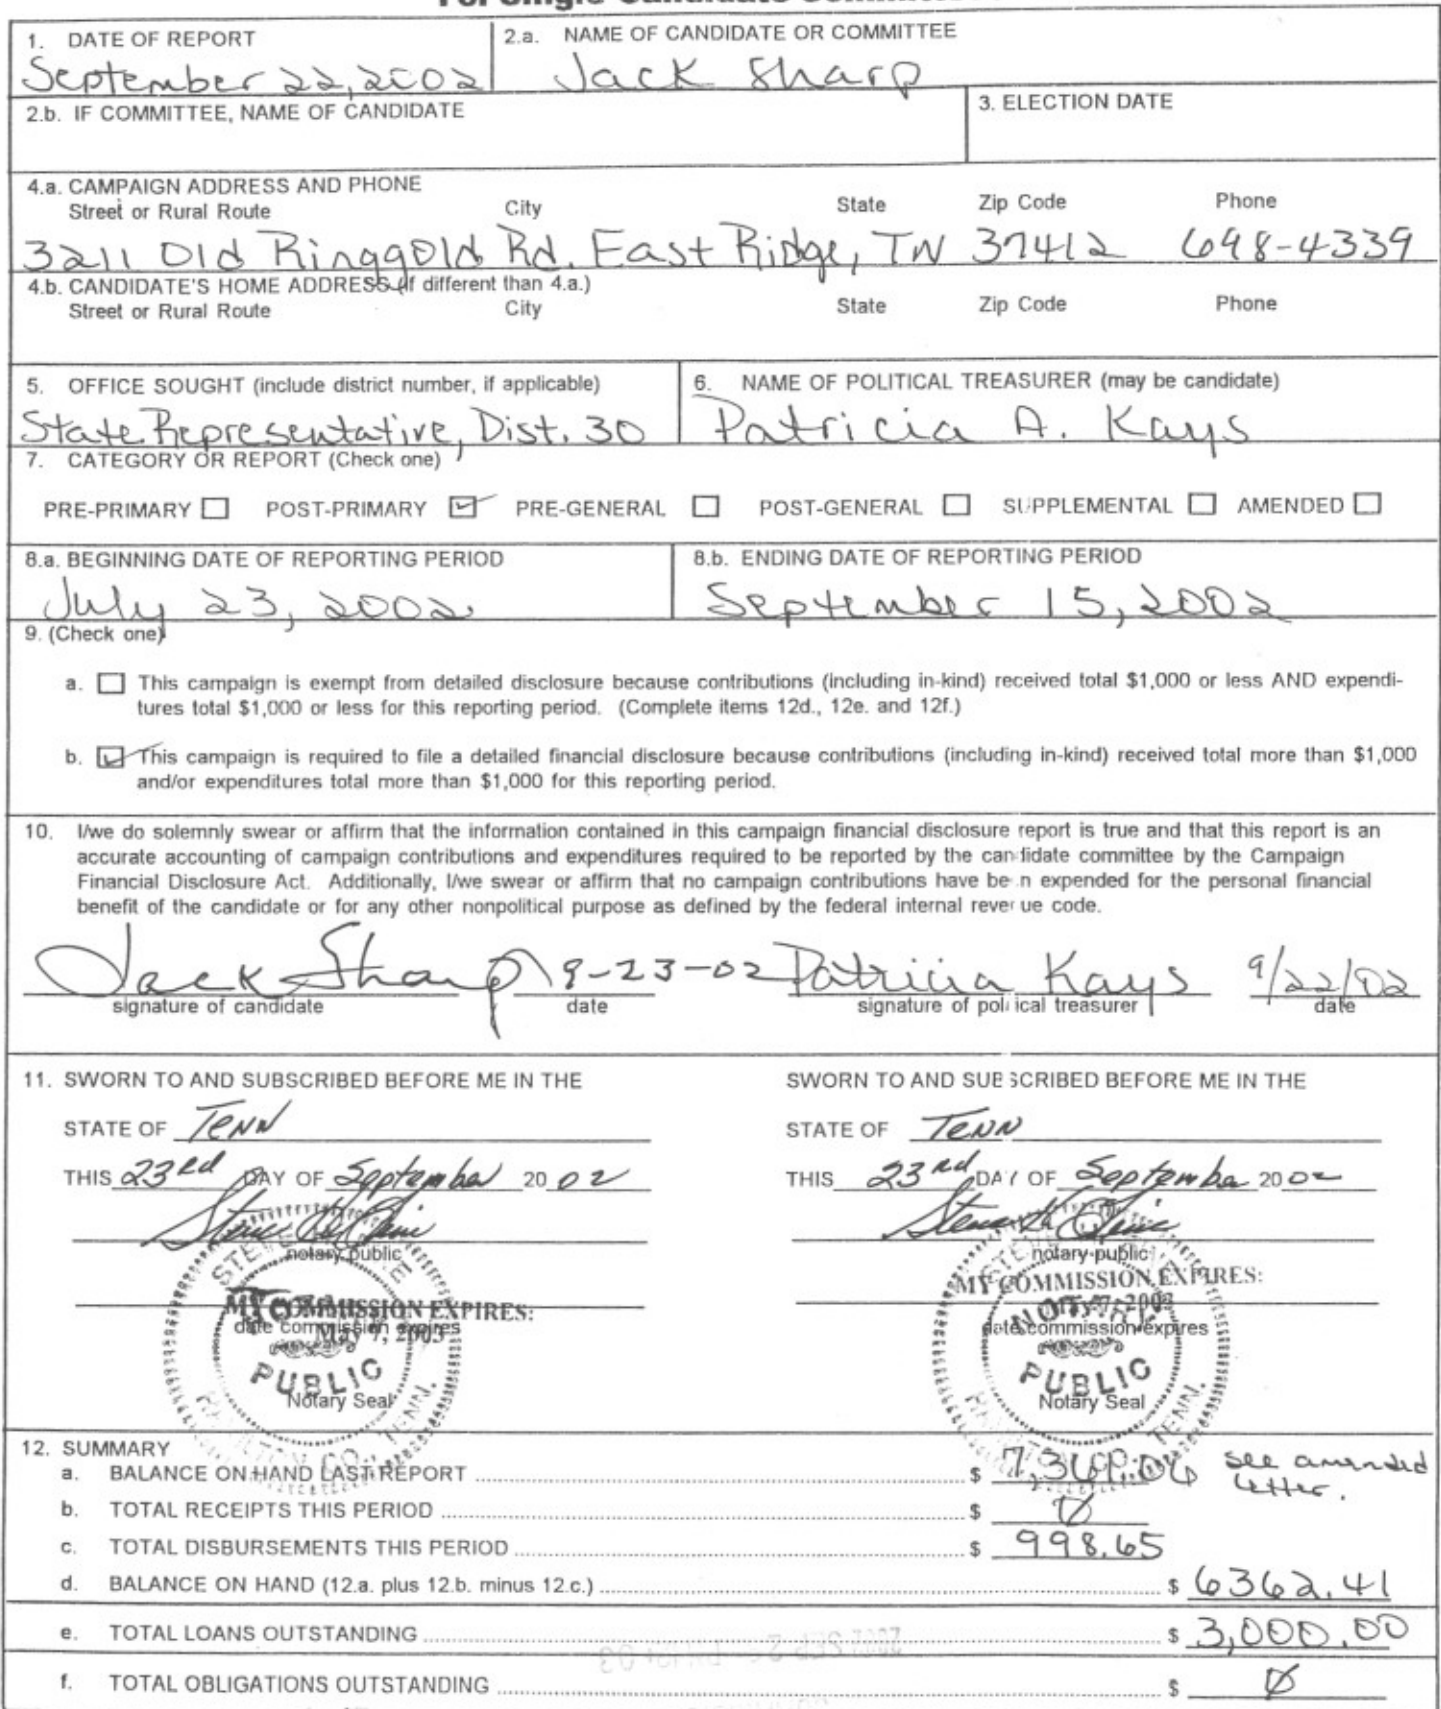 1. DATE OF REPORT
September 22, 2002
2.a. NAME OF CANDIDATE OR COMMITTEE
Jack Sharp
2.b. IF COMMITTEE, NAME OF CANDIDATE
3. ELECTION DATE
4.a. CAMPAIGN ADDRESS AND PHONE
Street or Rural Route City State Zip Code Phone
3211 Old Ringgold Rd. East Ridge, TN 37412 698-4339
4.b. CANDIDATE'S HOME ADDRESS (if different than 4.a.)
Street or Rural Route City State Zip Code Phone
5. OFFICE SOUGHT (include district number, if applicable)
State Representative, Dist. 30
6. NAME OF POLITICAL TREASURER (may be candidate)
Patricia A. Kays
7. CATEGORY OR REPORT (Check one)
PRE-PRIMARY ☐ POST-PRIMARY ☑ PRE-GENERAL ☐ POST-GENERAL ☐ SUPPLEMENTAL ☐ AMENDED ☐
8.a. BEGINNING DATE OF REPORTING PERIOD
July 23, 2002
8.b. ENDING DATE OF REPORTING PERIOD
September 15, 2002
9. (Check one)
a. ☐ This campaign is exempt from detailed disclosure because contributions (including in-kind) received total $1,000 or less AND expendi-
tures total $1,000 or less for this reporting period. (Complete items 12d., 12e. and 12f.)
b. ☑ This campaign is required to file a detailed financial disclosure because contributions (including in-kind) received total more than $1,000
and/or expenditures total more than $1,000 for this reporting period.
10. I/we do solemnly swear or affirm that the information contained in this campaign financial disclosure report is true and that this report is an
accurate accounting of campaign contributions and expenditures required to be reported by the candidate committee by the Campaign
Financial Disclosure Act. Additionally, I/we swear or affirm that no campaign contributions have been expended for the personal financial
benefit of the candidate or for any other nonpolitical purpose as defined by the federal internal revenue code.
Jack Sharp 9-23-02 Patricia Kays 9/22/02
signature of candidate date signature of political treasurer date
11. SWORN TO AND SUBSCRIBED BEFORE ME IN THE
STATE OF Tenn
THIS 23rd DAY OF September 20 02
notary public
MY COMMISSION EXPIRES:
date commission expires
May 7, 2003
PUBLIC
Notary Seal
HAMILTON CO., TENN.
SWORN TO AND SUBSCRIBED BEFORE ME IN THE
STATE OF Tenn
THIS 23rd DAY OF September 20 02
notary public
MY COMMISSION EXPIRES:
date commission expires
NOTARY
PUBLIC
Notary Seal
TENN.
12. SUMMARY
a. BALANCE ON HAND LAST REPORT $ 7,361.06 see amended
letter.
b. TOTAL RECEIPTS THIS PERIOD $ 0
c. TOTAL DISBURSEMENTS THIS PERIOD $ 998.65
d. BALANCE ON HAND (12.a. plus 12.b. minus 12.c.) $ 6362.41
e. TOTAL LOANS OUTSTANDING $ 3,000.00
f. TOTAL OBLIGATIONS OUTSTANDING $ 0